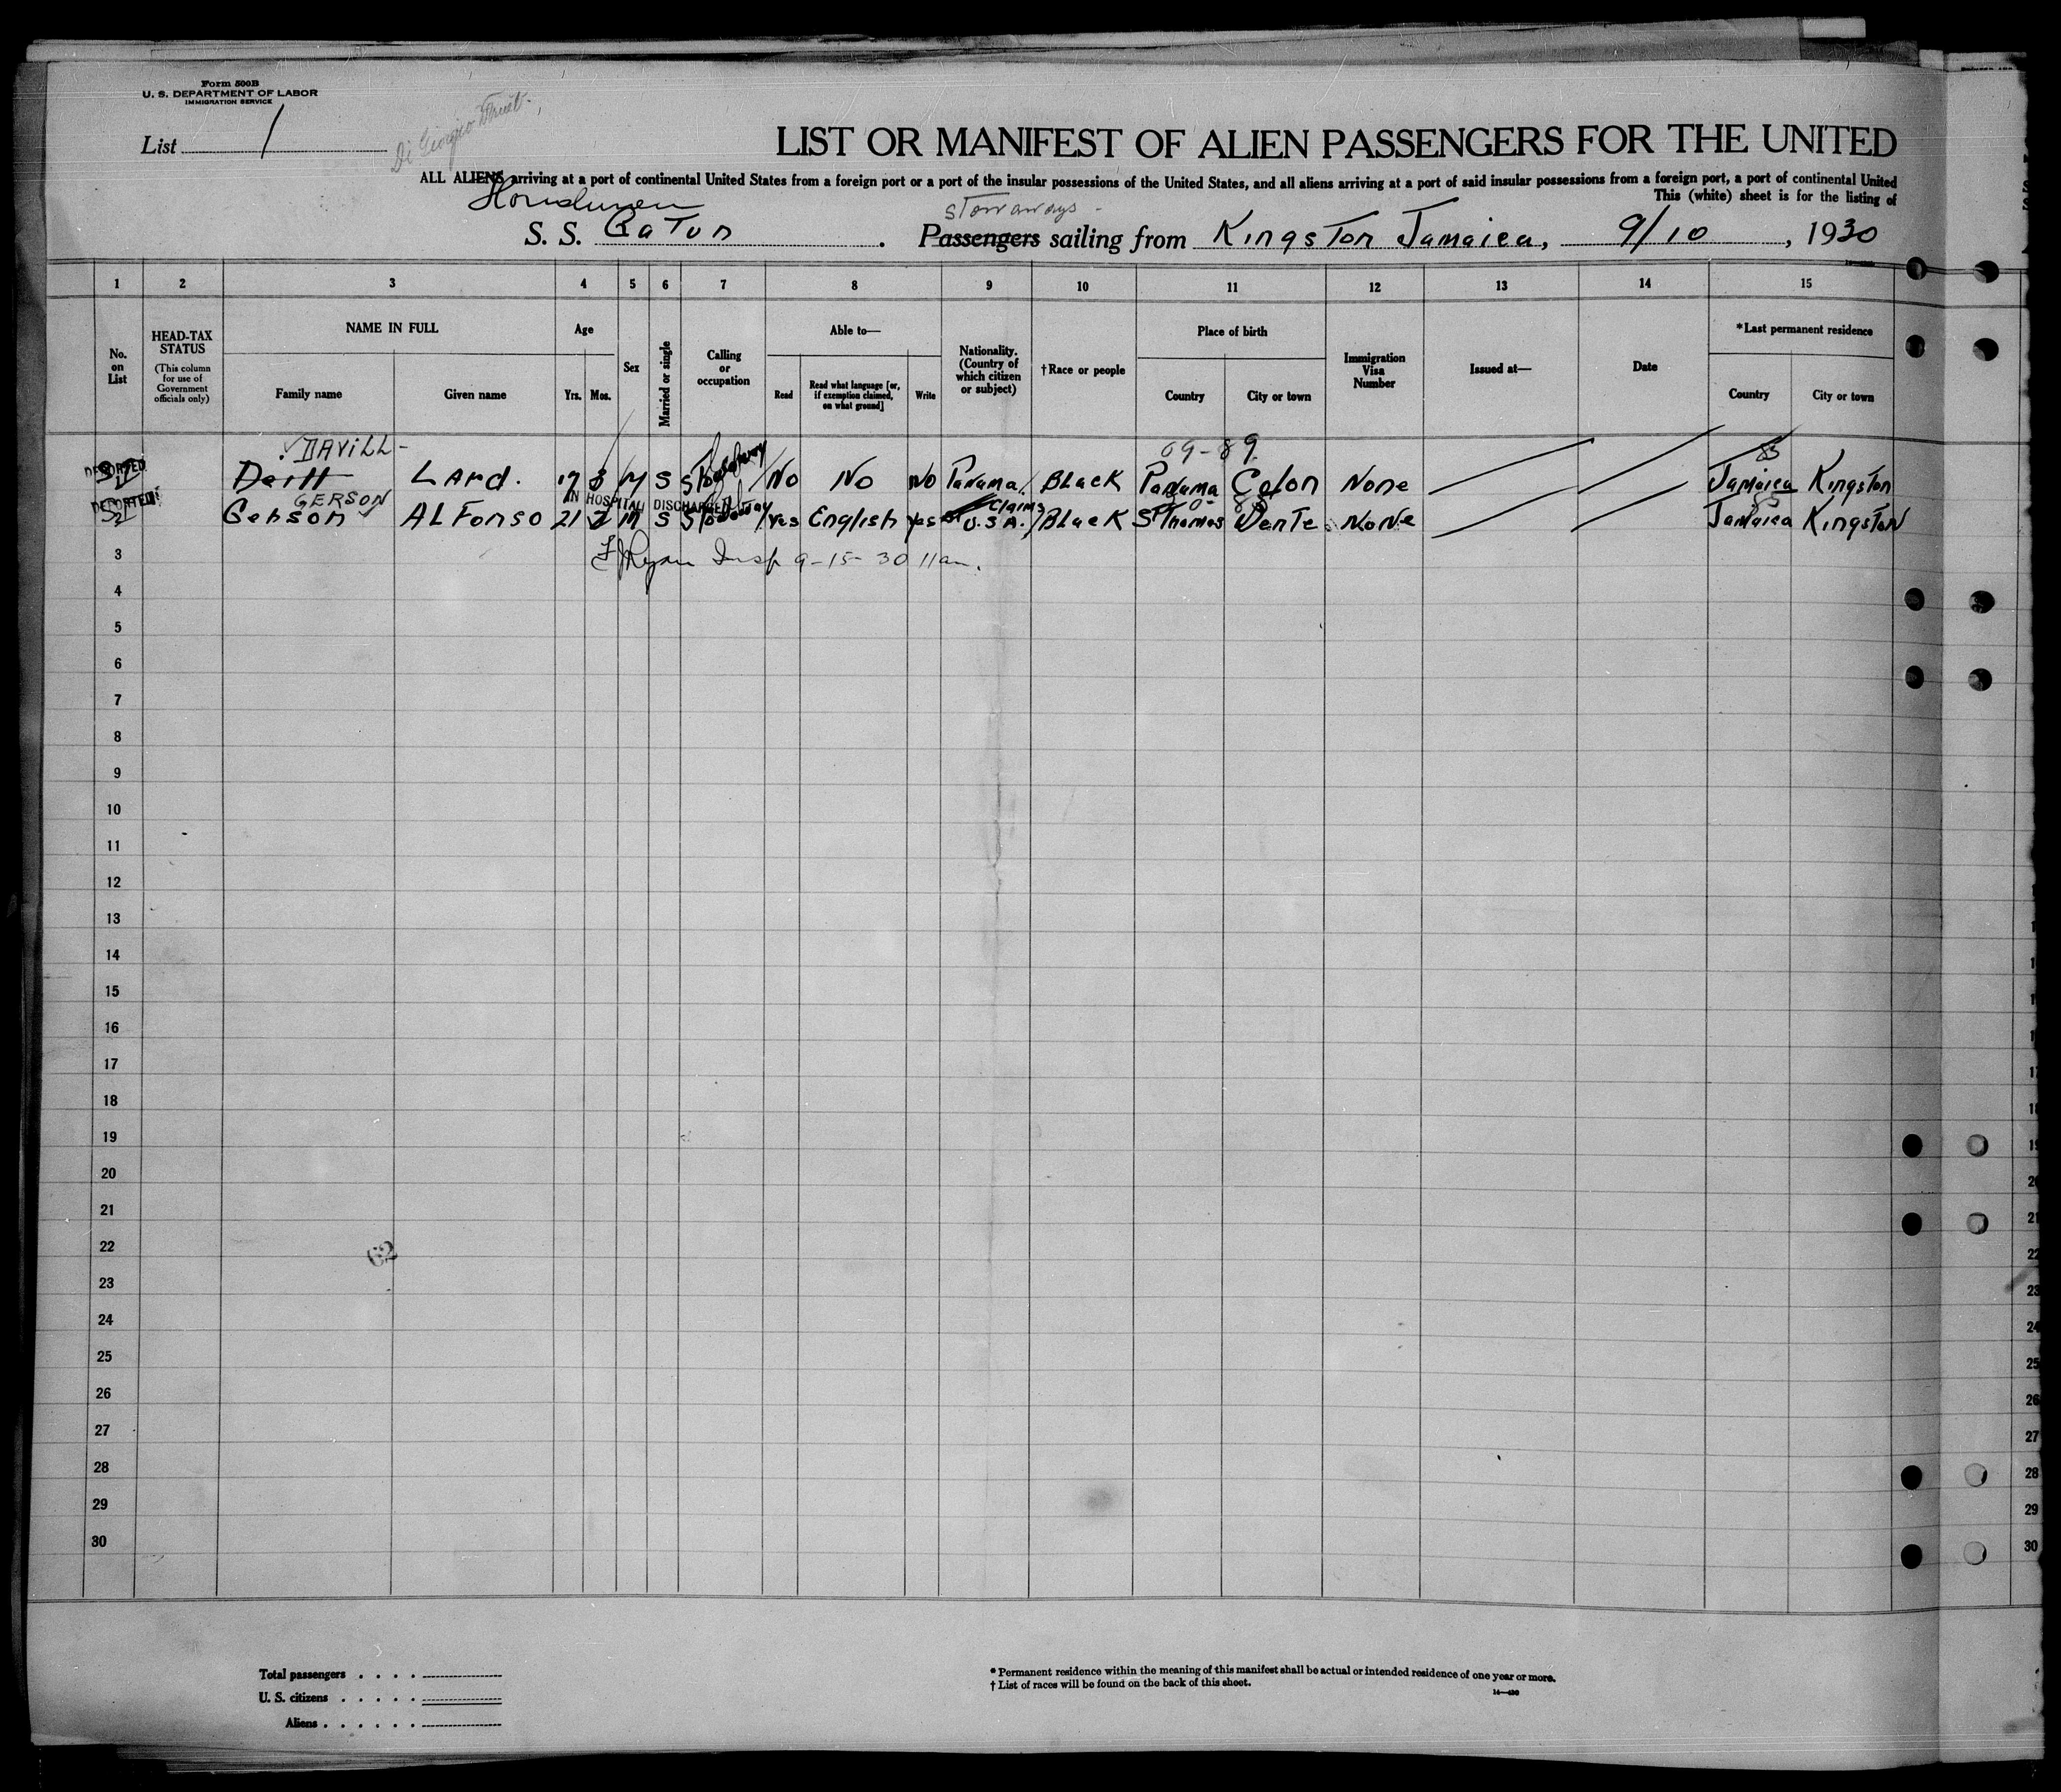 Form 500B
U. S. DEPARTMENT OF LABOR
IMMIGRATION SERVICE
List 1
Di Giorgio Fruit.
LIST OR MANIFEST OF ALIEN PASSENGERS FOR THE UNITED
ALL ALIENS arriving at a port of continental United States from a foreign port or a port of the insular possessions of the United States, and all aliens arriving at a port of said insular possessions from a foreign port, a port of continental United
This (white) sheet is for the listing of
Honduran
stowaways -
S. S. Gatun . Passengers sailing from Kingston Jamaica, 9/10, 1930
1 2 3 4 5 6 7 8 9 10 11 12 13 14 15
No. on List
HEAD-TAX STATUS
(This column for use of Government officials only)
NAME IN FULL
Family name Given name
Age
Yrs. Mos.
Sex
Married or single
Calling or occupation
Able to—
Read
Read what language [or, if exemption claimed, on what ground]
Write
Nationality. (Country of which citizen or subject)
†Race or people
Place of birth
Country City or town
Immigration Visa Number
Issued at—
Date
*Last permanent residence
Country City or town
DAVILL- 09-89
DEPORTED Lard. 17 8 M S Stowaway No No No Panama Black Panama Colon None Jamaica Kingston
GERSON IN HOSPITAL DISCHARGED Claims
DEPORTED Gerson ALFonso 21 2 M S Stowaway yes English yes U.S.A. Black St Thomas None Jamaica Kingston
3 Ryan Insp 9-15-30 11am.
4
5
6
7
8
9
10
11
12
13
14
15
16
17
18
19
20
21
22
62
23
24
25
26
27
28
29
30
Total passengers . . . .
U. S. citizens . . . . .
Aliens . . . . . .
* Permanent residence within the meaning of this manifest shall be actual or intended residence of one year or more.
† List of races will be found on the back of this sheet.